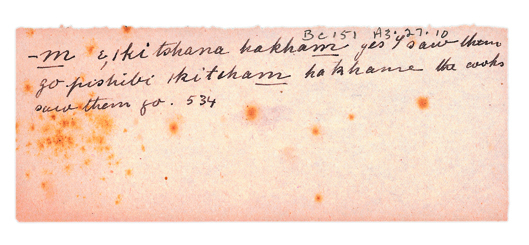 BC151 A3.27.10
-m e, ikitshana hakham yes I saw them
go pishibi ikitcham hakhame the cooks
saw them go. 534